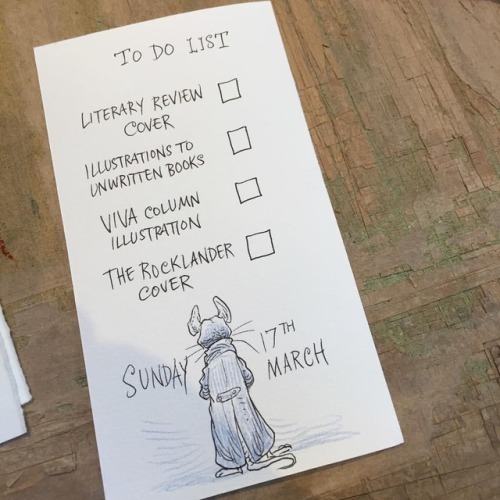 TO DO LIST
LITERARY REVIEW
COVER
ILLUSTRATIONS TO
UNWRITTEN BOOKS
VIVA COLUMN
ILLUSTRATION
THE ROCKLANDER
COVER
SUNDAY 17TH
MARCH